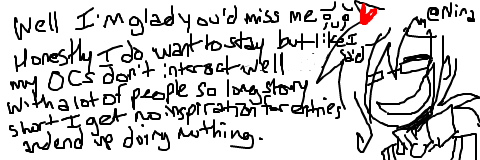 Well I'm glad you'd miss me
@Nina
Honestly I do want to stay but like I said
my OCs don't interact well
with a lot of people so long story
short I get no inspiration for entries
and end up doing nothing.